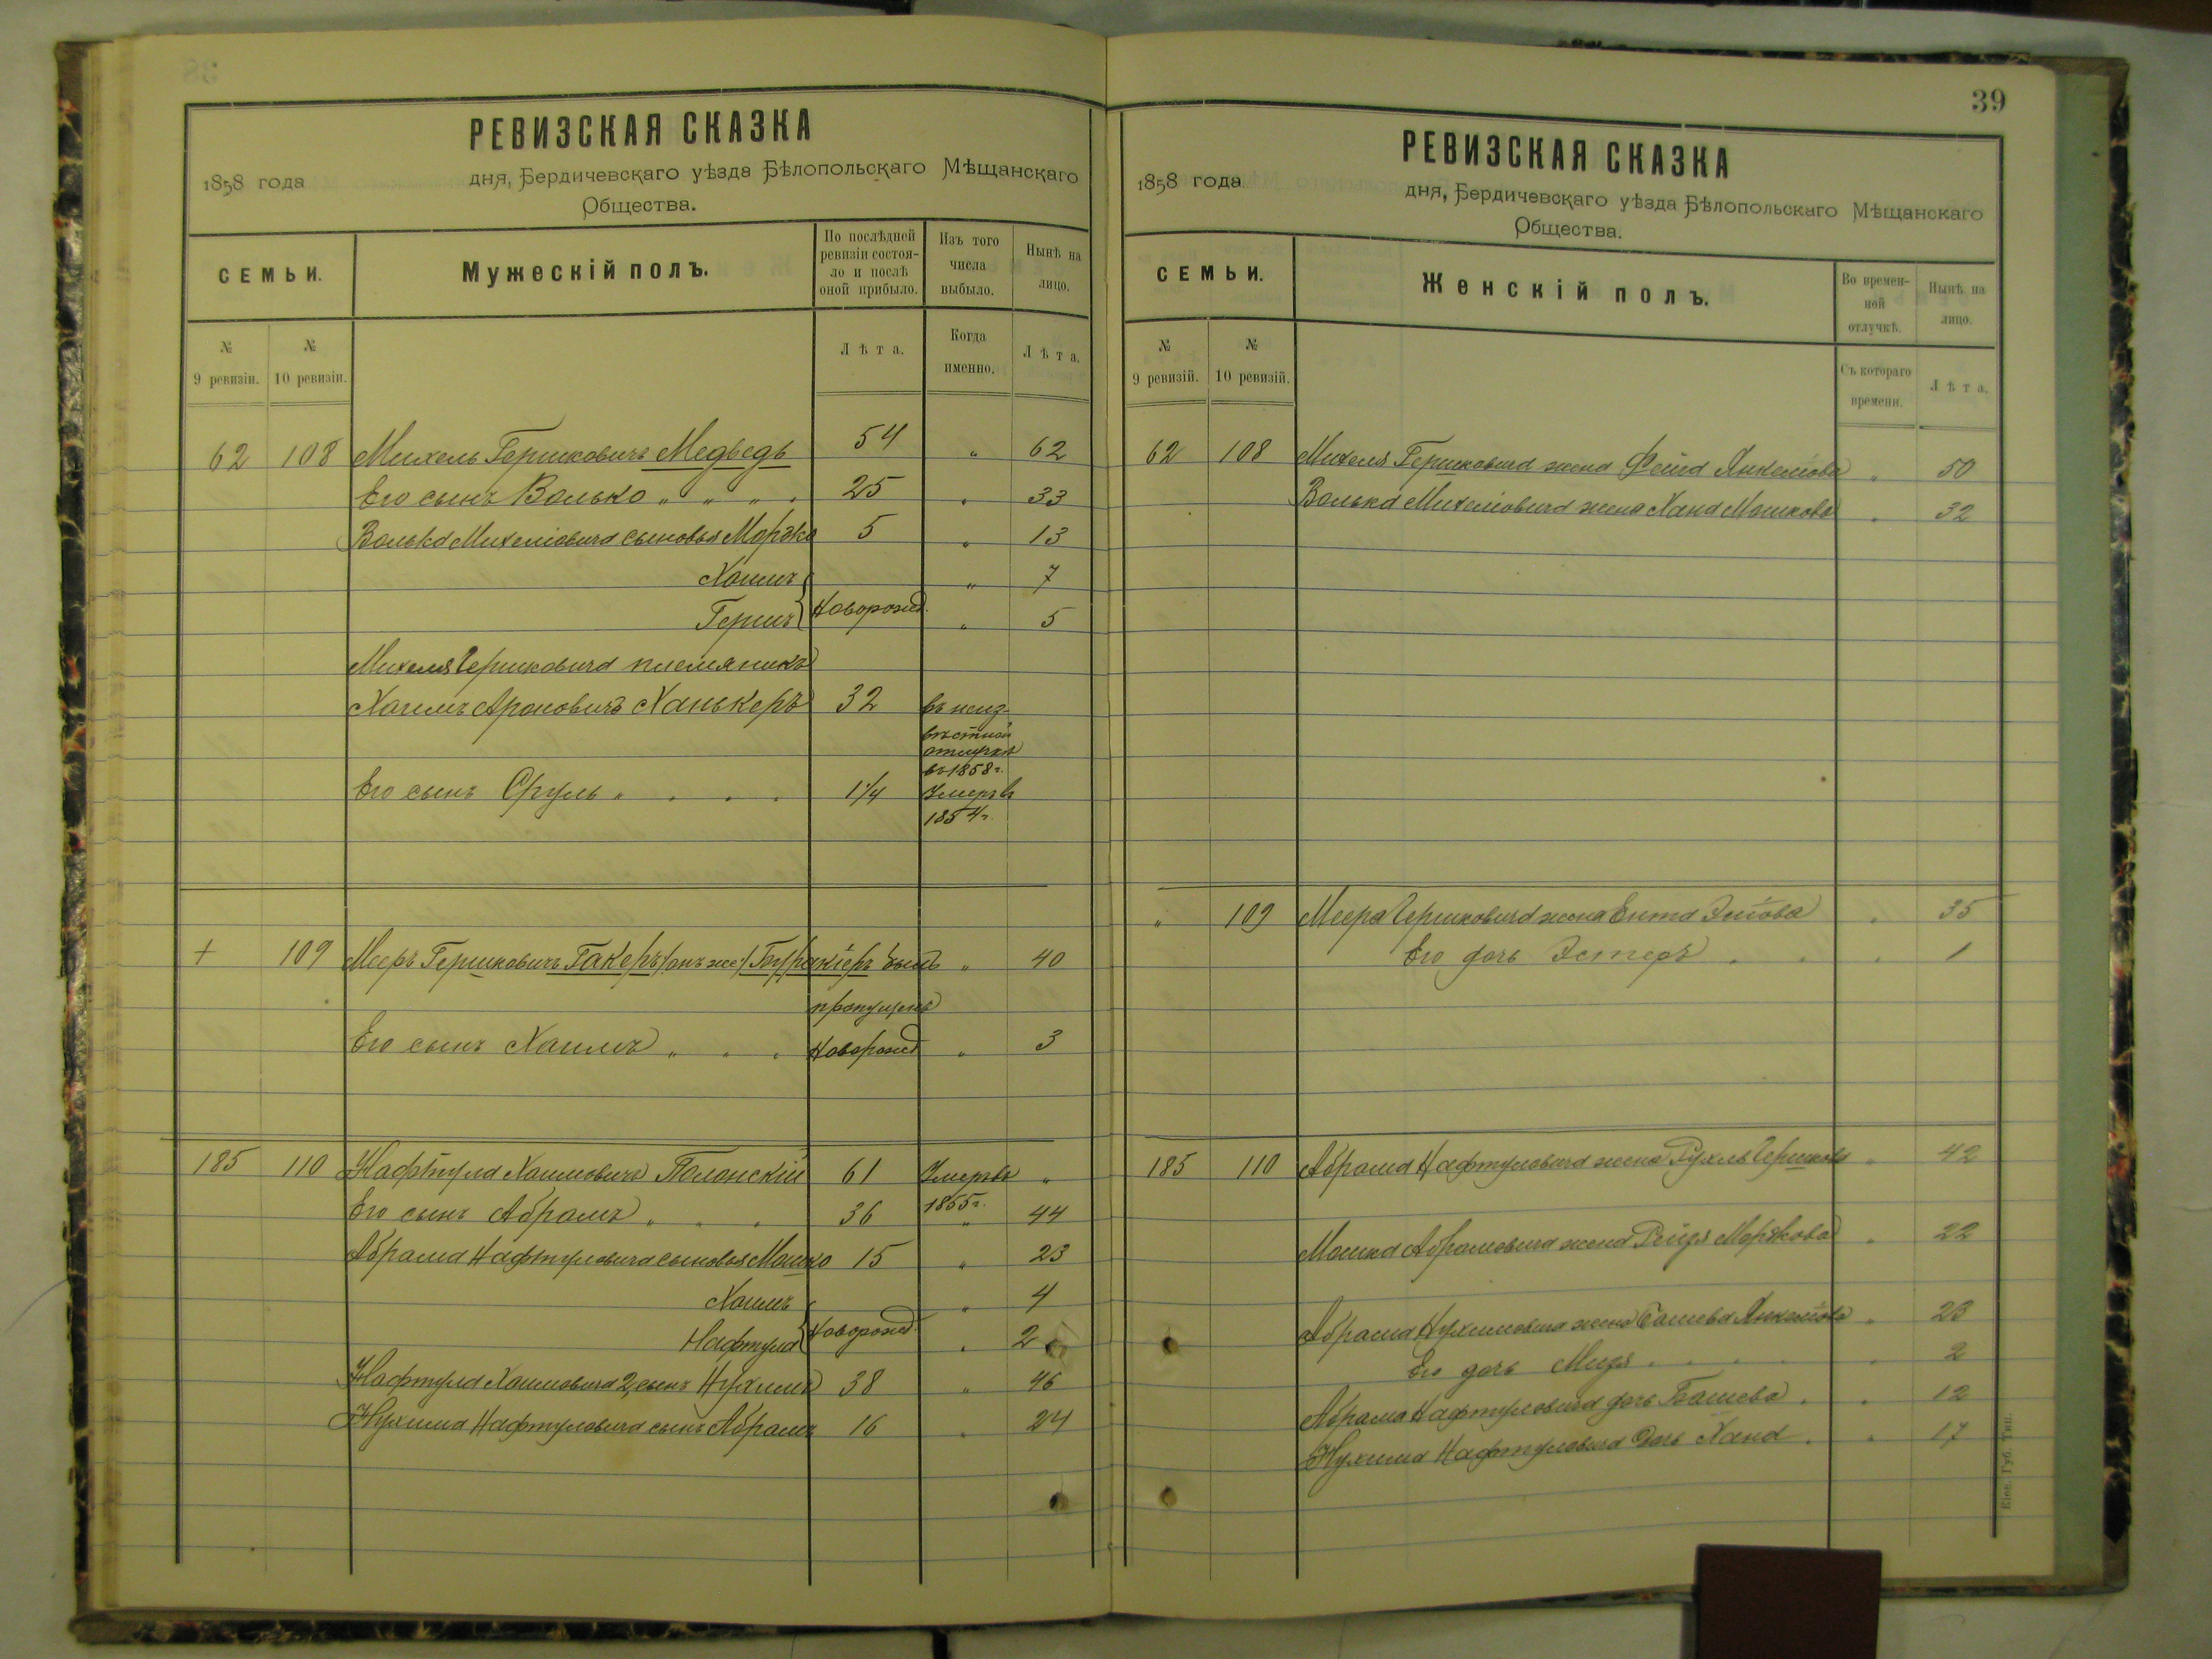 РЕВИЗСКАЯ СКАЗКА
1858 года дня, Бердичевскаго уѣзда Бѣлопольскаго Мѣщанскаго
Общества.
СЕМЬИ. Мужескій полъ. По послѣдней ревизіи состояло и послѣ оной прибыло. Изъ того числа выбыло. Нынѣ на лицо.
№ 9 ревизіи. № 10 ревизіи. Лѣта. Когда именно. Лѣта.
62 108 Михель Гершковичъ Медведь 54 " 62
Его сынъ Волько " " " " 25 " 33
Волька Михелiовича сыновья Мордко 5 " 13
Хаимъ " 7
Гершъ Новорожд. " 5
Михеля Гершковича племяникъ
Хаимъ Ароновичъ Ханькеръ 32 въ неиз-
вѣстной
отлучкѣ
въ 1858 г.
Его сынъ Сруль " 1 1/4 Умеръ в
1854 г.
+ 109 Мееръ Гершковичъ Гакеръ /онъ же/ былъ " 40
пропущенъ
Его сынъ Хаимъ " Новорожд " 3
185 110 Нафтула Хаимовичъ Полонскій 61 Умеръ въ "
1855 г.
Его сынъ Абрамъ " 36 " 44
Абрама Нафтуловича сыновья Мошко 15 " 23
Хаимъ " 4
Нафтула Новорожд. " 2
Нафтула Хаимовича 2, сынъ Нухимъ 38 " 46
Нухима Нафтуловича сынъ Абрамъ 16 " 24
39
РЕВИЗСКАЯ СКАЗКА
1858 года дня, Бердичевскаго уѣзда Бѣлопольскаго Мѣщанскаго
Общества.
СЕМЬИ. Женскій полъ. Во временной отлучкѣ. Нынѣ на лицо.
№ 9 ревизій. № 10 ревизій. Съ котораго времени. Лѣта.
62 108 Михеля Гершковича жена Фейга Янкелiова " 50
Волька Михелiовича жена Хана Мошкова " 32
" 109 Меера Гершковича жена Ента " 35
Его дочь Эстеръ " 1
185 110 Абрама Нафтуловича жена Рухль Гершкова " 42
Мошка Абрамовича жена Рейзя Мордкова " 22
Абрама Нухимовича жена Башева Янкелiова " 23
Его дочь " 2
Абрама Нафтуловича дочь Башева " 12
Нухима Нафтуловича дочь Хана " 17
Кіев. Губ. Тип.